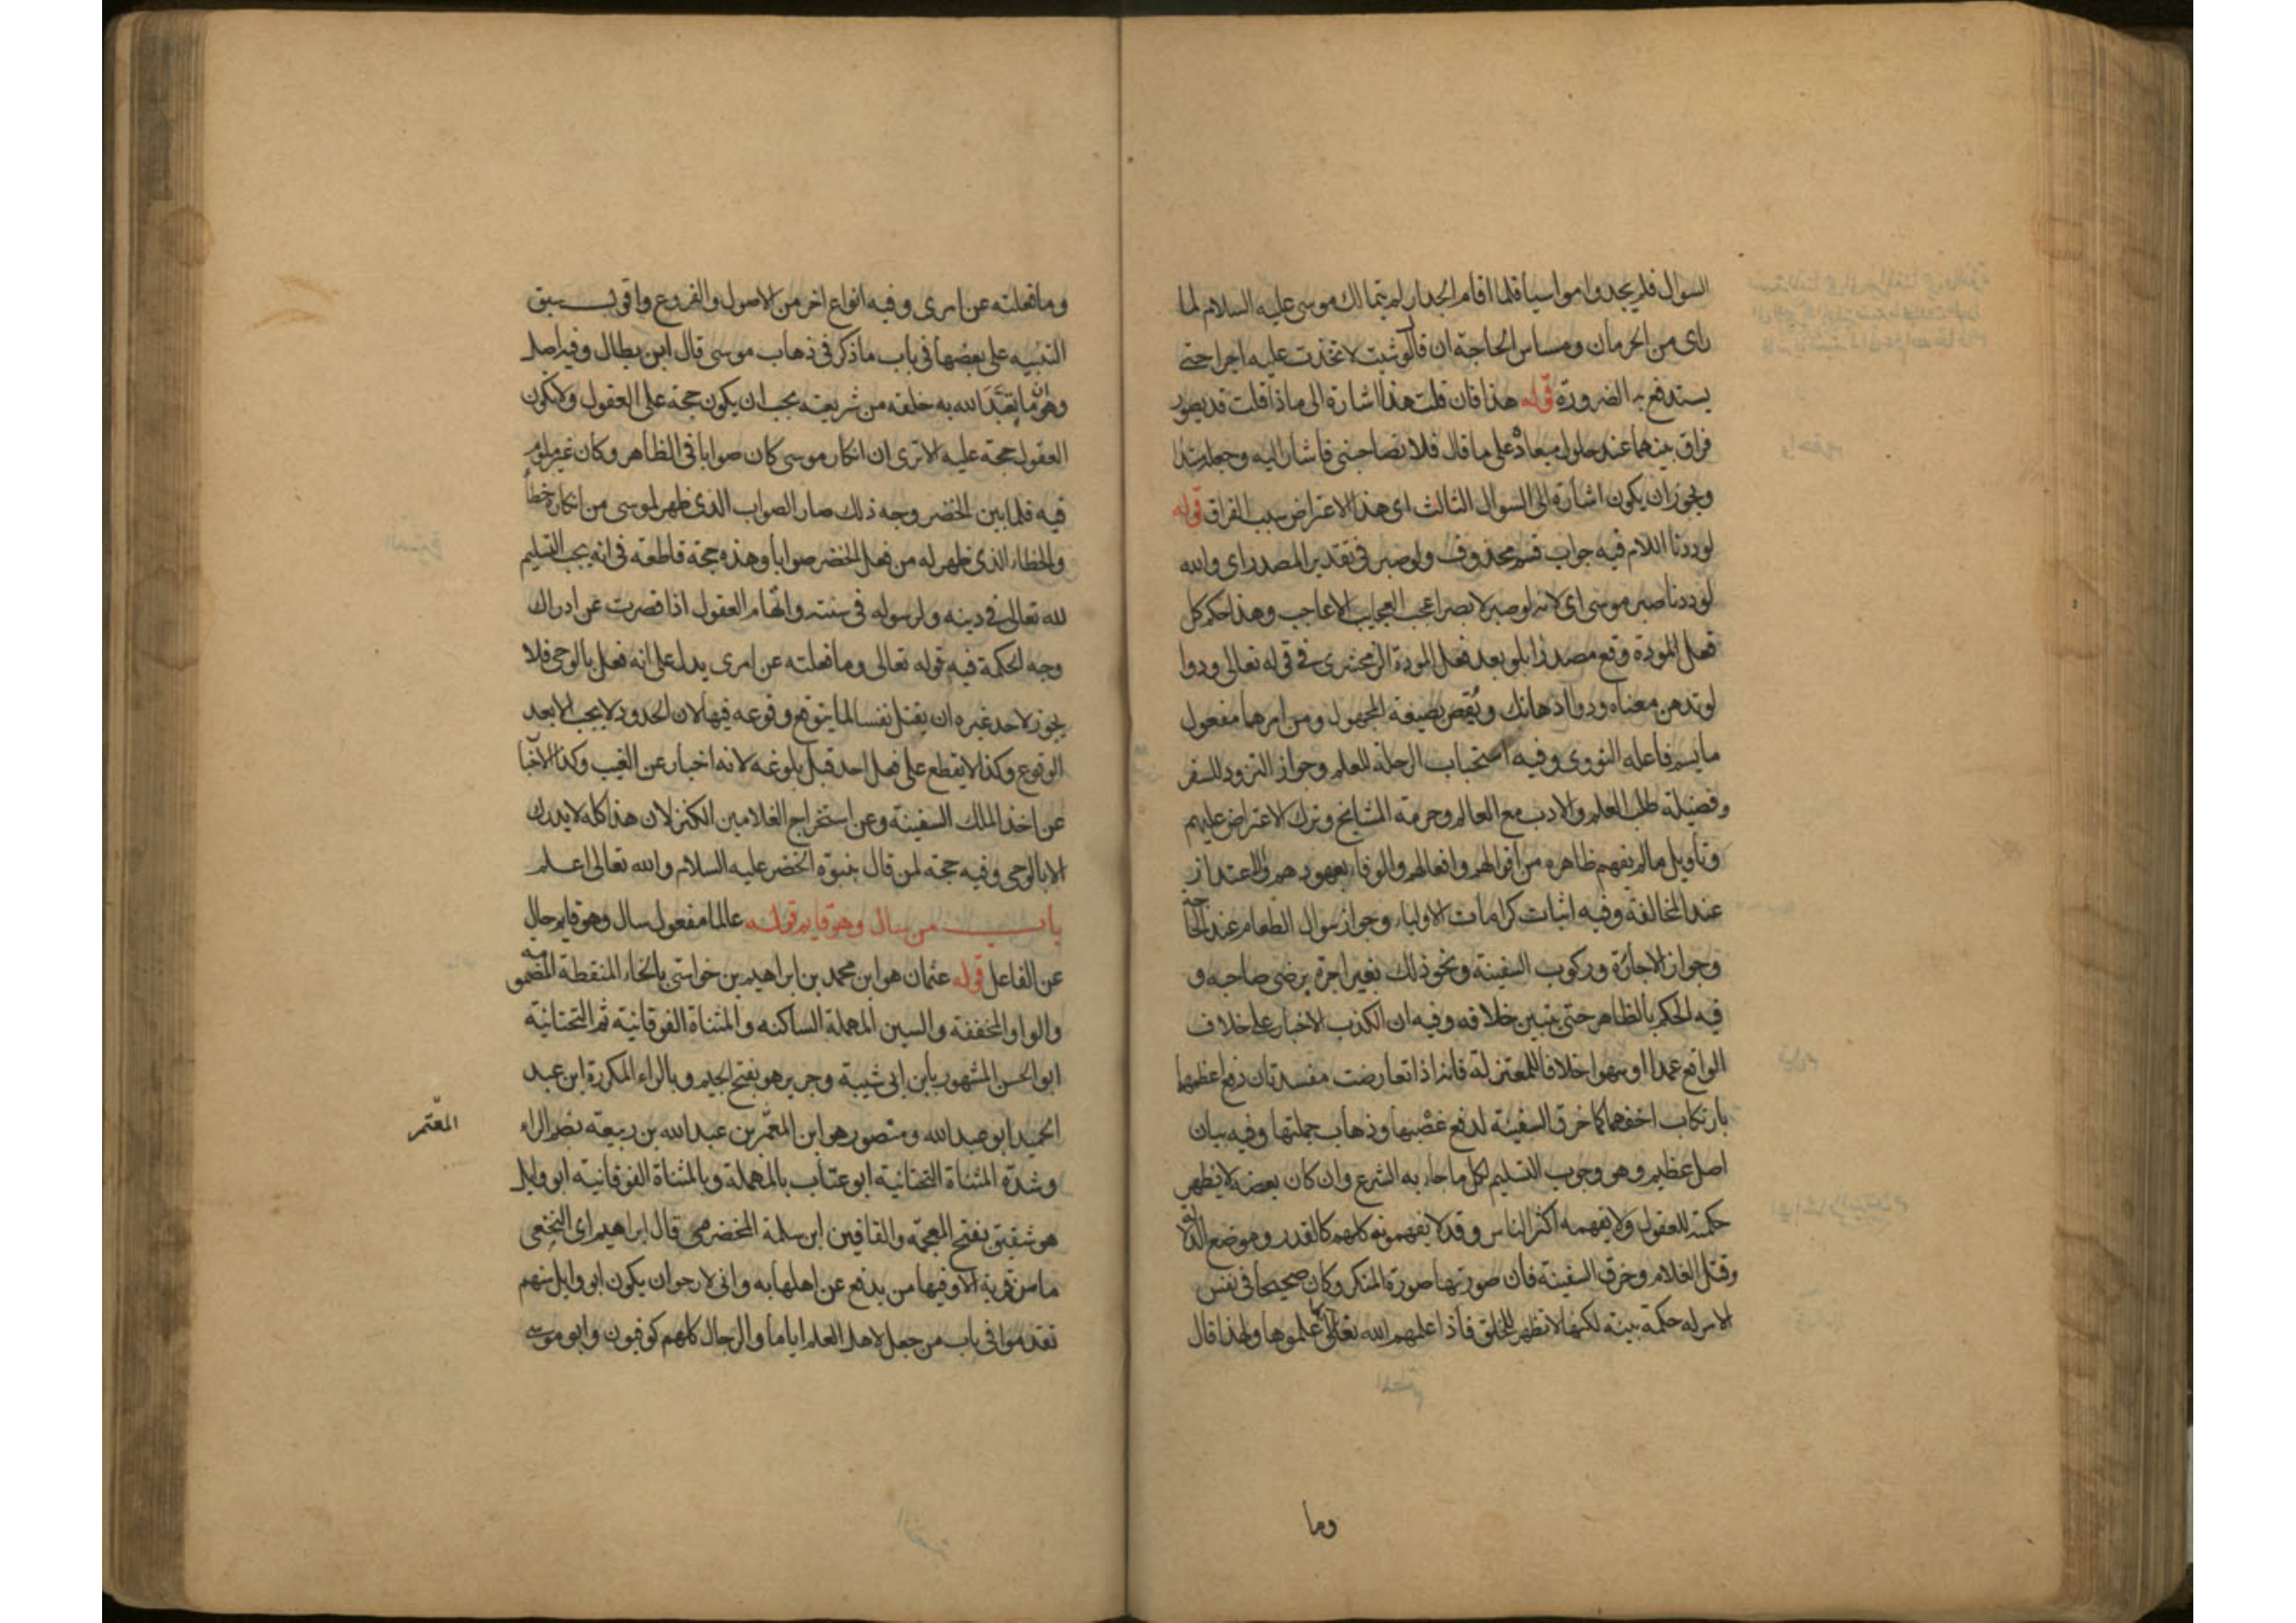 السوال فلم يجدوا مواسيا فلما اقام الجدار لم يتمالك موسى عليه السلام لما
راى من الحرمان ومساس الحاجة ان قال لو شيت لاتخذت عليه اجرا حتى
يستدفع به الضرورة قوله هذا فان قلت هذا اشارة الى ماذا قلت قد يصور
فراق بينهما عند حلول ميعاده على ما قال فلا تصاحبنى فاشار اليه وجعله مبتدا
ويجوز ان يكون اشارة الى السوال الثالث اى هذا الاعتراض سبب الفراق قوله
لوددنا اللام فيه جواب قسم محذوف ولو صبر فى تقدير المصدر اى والله
لوددنا صبر موسى اى لانه لو صبر لابصر اعجب العجايب الاعاجب وهذا حكم كل
فعل المودة وقع مصدرا بلو بعد فعل المودة الزمخشرى فى قوله تعالى ودوا
لو تدهن معناه ودوا ادهانك ويُقص بصيغة المجهول ومن امرهما مفعول
ما يسم فاعله النووى وفيه استحباب الرحلة للعلم وجواز التزود للسفر
وفضيلة طلب العلم والادب مع العالم وحرمة المشايخ وترك الاعتراض عليهم
وتاويل ما لم يفهم ظاهره من اقوالهم وافعالهم والوفاء بعهودهم والاعتذار
عند المخالفة وفيه اثبات كرامات الاولياء وجواز سوال الطعام عند الحاجة
وجواز الاجارة وركوب السفينة ونحو ذلك بغير اجرة برضى صاحبه و
فيه الحكم بالظاهر حتى يتبين خلافه وفيه ان الكذب الاخبار على خلاف
الواقع عمدا او سهوا خلافا للمعتزلة فانه اذا تعارضت مفسدتان دفع اعظمهما
بارتكاب اخفهما كما خرق السفينة لدفع غصبها وذهاب جملتها وفيه بيان
اصل عظيم وهو وجوب التسليم لكل ما جاء به الشرع وان كان بعضه لا يظهر
حكمته للعقول ولا يفهمه اكثر الناس وقد لا يفهمونه كلهم كالقدر وموضع الدلالة
وقتل الغلام وخرق السفينة فان صورتها صورة المنكر وكان صحيحا فى نفس
الامر له حكمة بينة لكنها لا تظهر للخلق فاذا اعلمهم الله تعالى علموها ولهذا قال
وما
وما فعلته عن امرى وفيه انواع اخر من الاصول والفروع واقول سبق
التنبيه على بعضها فى باب ما ذكر فى ذهاب موسى قال ابن بطال وفيه اصل
وهو ما تعبّد الله به خلقه من شريعته يجب ان يكون حجة على العقول ولا تكون
العقول حجة عليه الا ترى ان انكار موسى كان صوابا فى الظاهر وكان غير ملوم
فيه فلما بين الخضر وجه ذلك صار الصواب الذى ظهر لموسى من انكاره خطأ
والخطاء الذى ظهر له من فعل الخضر صوابا وهذه حجة قاطعة فى انه يجب التسليم
لله تعالى فى دينه ولرسوله فى سنته واتهام العقول اذا قصرت عن ادراك
وجه الحكمة فيه قوله تعالى وما فعلته عن امرى يدل على انه فعل بالوحى فلا
يجوز لاحد غيره ان يقتل نفسا لما يتوقع وقوعه فيها لان الحدود لا يجب الا بعد
الوقوع وكذا لا يقطع على فعل احد قبل بلوغه لانه اخبار عن الغيب وكذا الاخبا
عن اخذ الملك السفينة وعن استخراج الغلامين الكنز لان هذا كله لا يدرك
الا بالوحى وفيه حجة لمن قال بنبوة الخضر عليه السلام والله تعالى اعلم
باب من سال وهو قايم قوله عالما مفعول سال وهو قايم حال
عن الفاعل قوله عثمان هو ابن محمد بن ابراهيم بن خواستى بالخاء المنقطة المضمومة
والواو المخففة والسين المهملة الساكنه والمثناة الفوقانية ثم التحتانية
ابو الحسن المشهور بابن ابى شيبة وجرير هو بفتح الجيم وبالراء المكررة ابن عبد
الحميد ابو عبد الله ومنصور هو ابن المعتمر بن عبد الله بن ربيعة بضم الراء
المعتمر
وشدة المثناة التحتانية ابو عتاب بالمهملة وبالمثناة الفوقانية ابو وايل
هو شقيق بفتح المعجمة والقافين ابن سلمة الحضرمى قال ابراهيم اى النخعى
ما من قرية الا وفيها من يدفع عن اهلها به وانى لارجو ان يكون ابو وايل منهم
تقدموا فى باب من جعل لاهل العلم اياما والرجال كلهم كوفيون وابو موسى